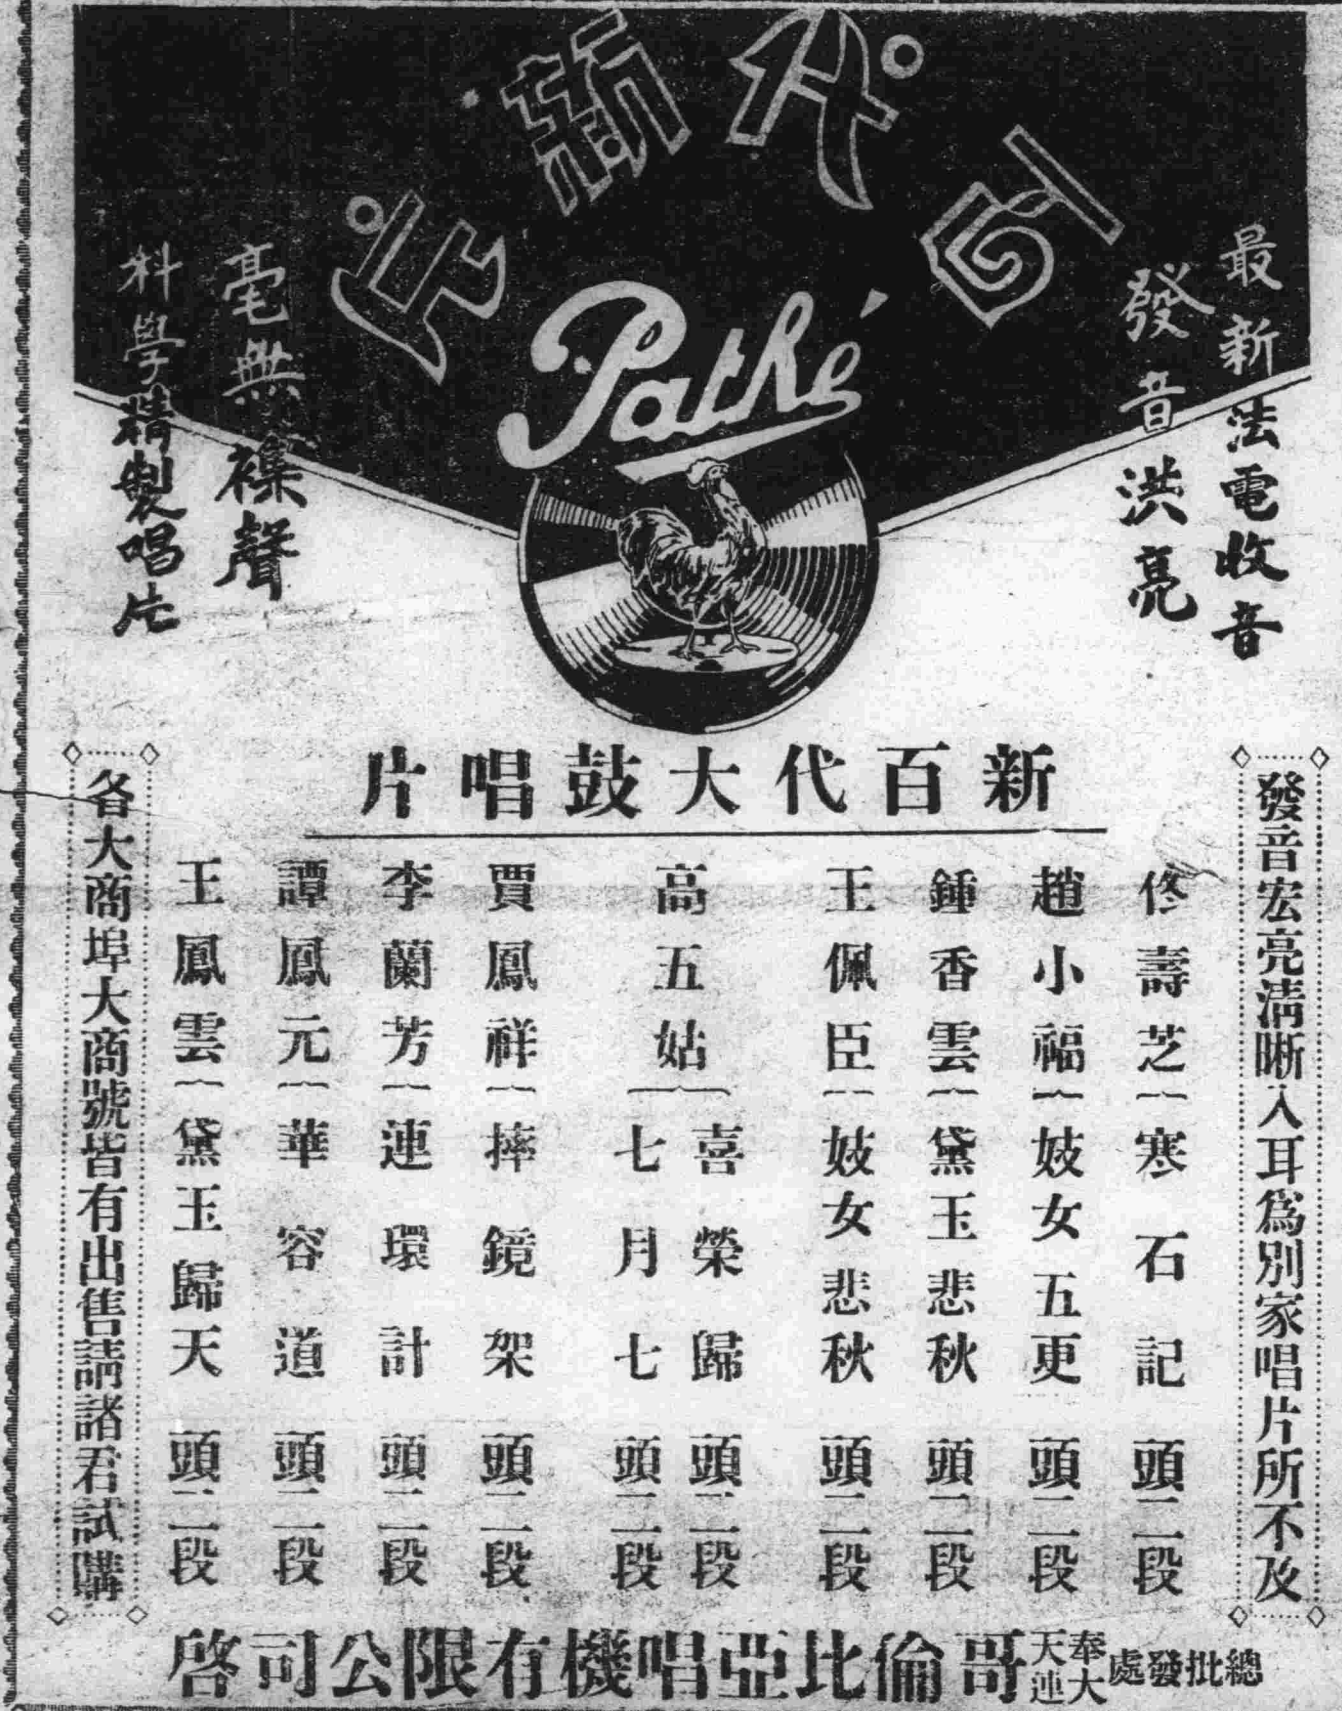 百代新片
Pathé
最新法電收音
發音洪亮
毫無襍聲
科學精製唱片
新百代大鼓唱片
發音宏亮清晰入耳爲別家唱片所不及
佟壽芝 寒石記 頭二段
趙小福 妓女五更 頭二段
鍾香雲 黛玉悲秋 頭二段
王佩臣 妓女悲秋 頭二段
高五姑 喜榮歸 頭二段
七月七 頭二段
賈鳳祥 摔鏡架 頭二段
李蘭芳 連環計 頭二段
譚鳳元 華容道 頭二段
王鳳雲 黛玉歸天 頭二段
各大商埠大商號皆有出售請諸君試購
總批發處 奉天 大連 哥倫比亞唱機有限公司啓